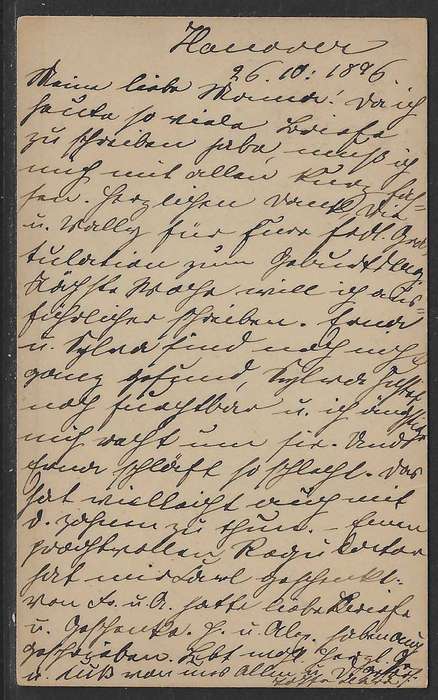 Hanover
26. 10. 1896.
Meine liebe Mama! Da ich
heute so viele Briefe
zu schreiben habe, muß ich
mich mit allen kurz fas=
sen. Herzlichen Dank Dir
u. Wally für Eure frdl. Gra=
tulation zum Geburtstag.
Nächste Woche will ich aus=
führlicher schreiben. Erna
u. Sylva sind noch nicht
ganz gesund, Sylva hustet
noch furchtbar u. ich ängstige
mich recht um sie. Und
Erna schläft so schlecht. Das
hat vielleicht auch mit
d. Zahnen zu thun. – Einen
prachtvollen Regulator
hat mir Carl geschenkt.
von Fr. u. A. hatte liebe Briefe
u. Geschenke. H. u. Alex. haben auch
geschrieben. Lebt wohl. Herzl. Gr.
u. Kuß von uns Allen u.